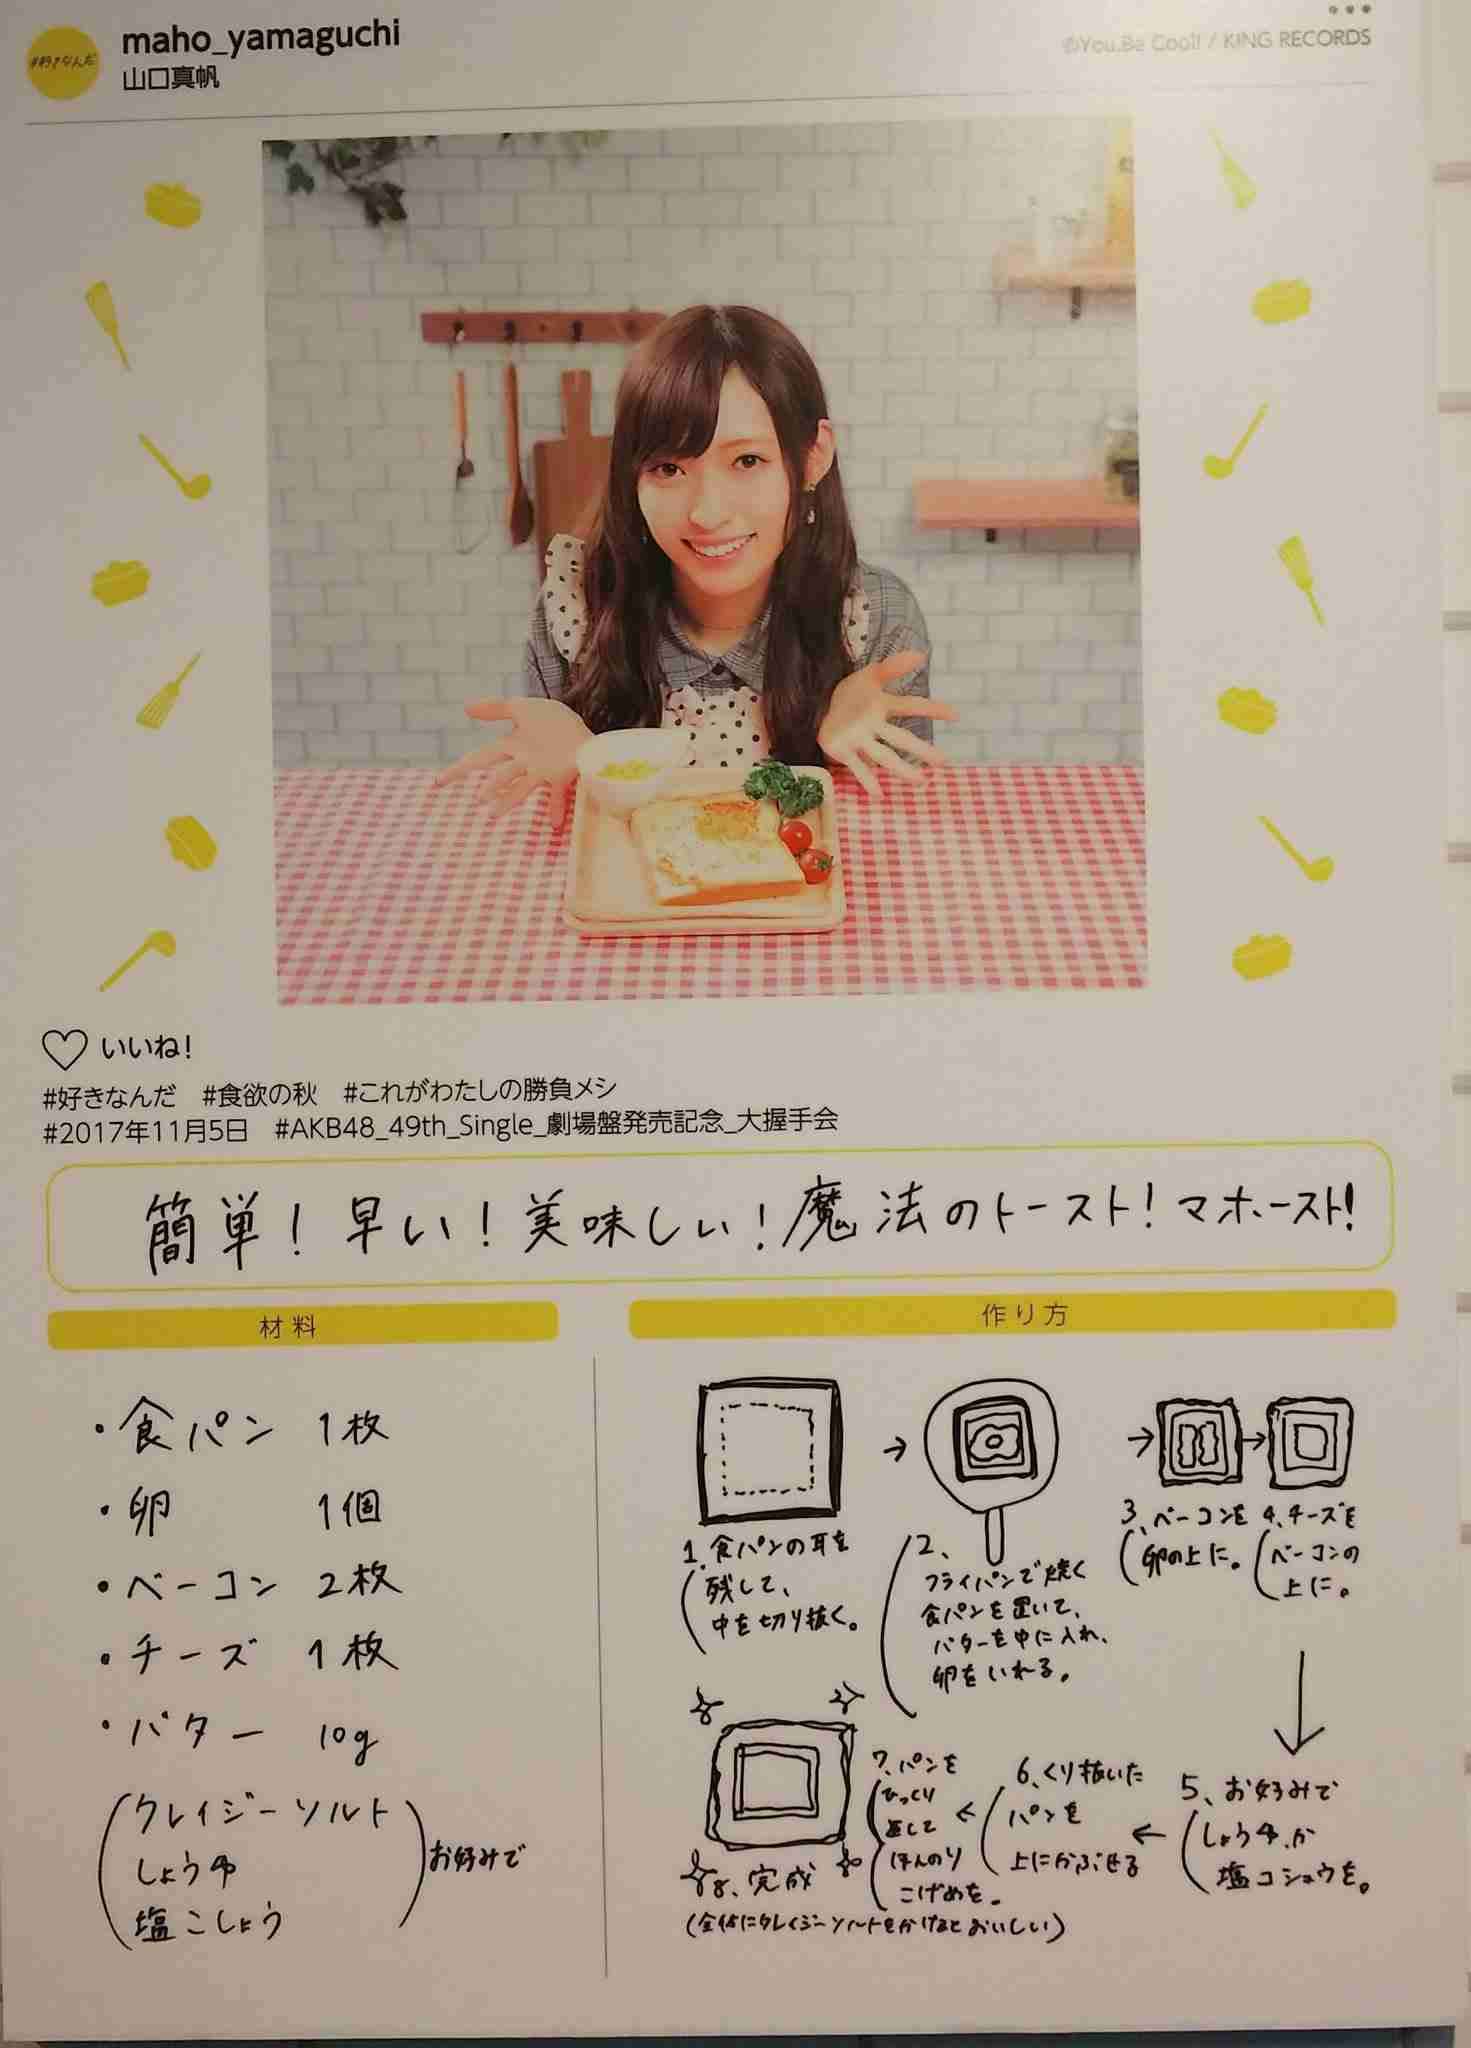 #好きなんだ
maho_yamaguchi
山口真帆
©You,Be Cool! / KING RECORDS
いいね!
#好きなんだ #食欲の秋 #これがわたしの勝負メシ
#2017年11月5日 #AKB48_49th_Single_劇場盤発売記念_大握手会
簡単!早い!美味しい!魔法のトースト!マホースト!
材料
・食パン 1枚
・卵 1個
・ベーコン 2枚
・チーズ 1枚
・バター 10g
(クレイジーソルト
しょうゆ
塩こしょう)お好みで
作り方
1、食パンの耳を
残して、
中を切り抜く。
2、
フライパンで焼く
食パンを置いて、
バターを中に入れ、
卵をいれる。
3、ベーコンを
卵の上に。
4、チーズを
ベーコンの
上に。
5、お好みで
しょうゆか
塩コショウを。
6、くり抜いた
パンを
上にかぶせる
7、パンを
ひっくり
返して
ほんのり
こげめを。
8、完成
(全体にクレイジーソルトをかけるとおいしい)